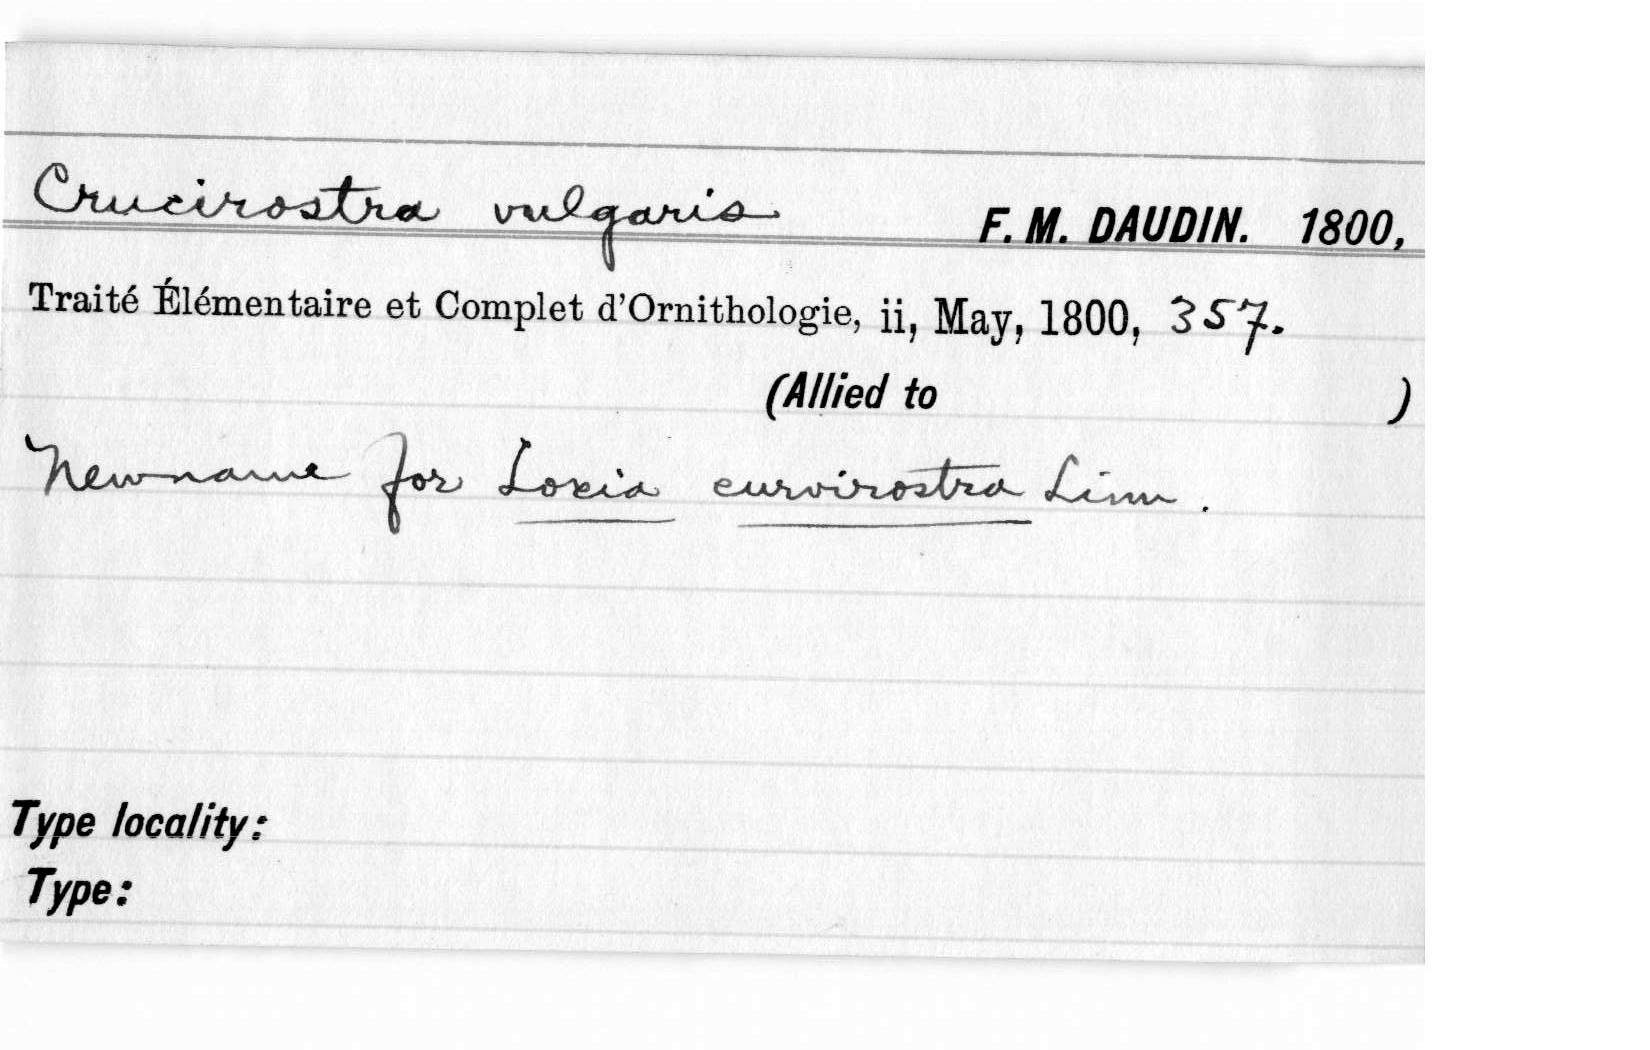 Crucirostra vulgaris F. M. DAUDIN. 1800,
Traité Élémentaire et Complet d'Ornithologie, ii, May, 1800, 357.
(Allied to )
New name for Loxia curvirostra Linn.
Type locality:
Type: